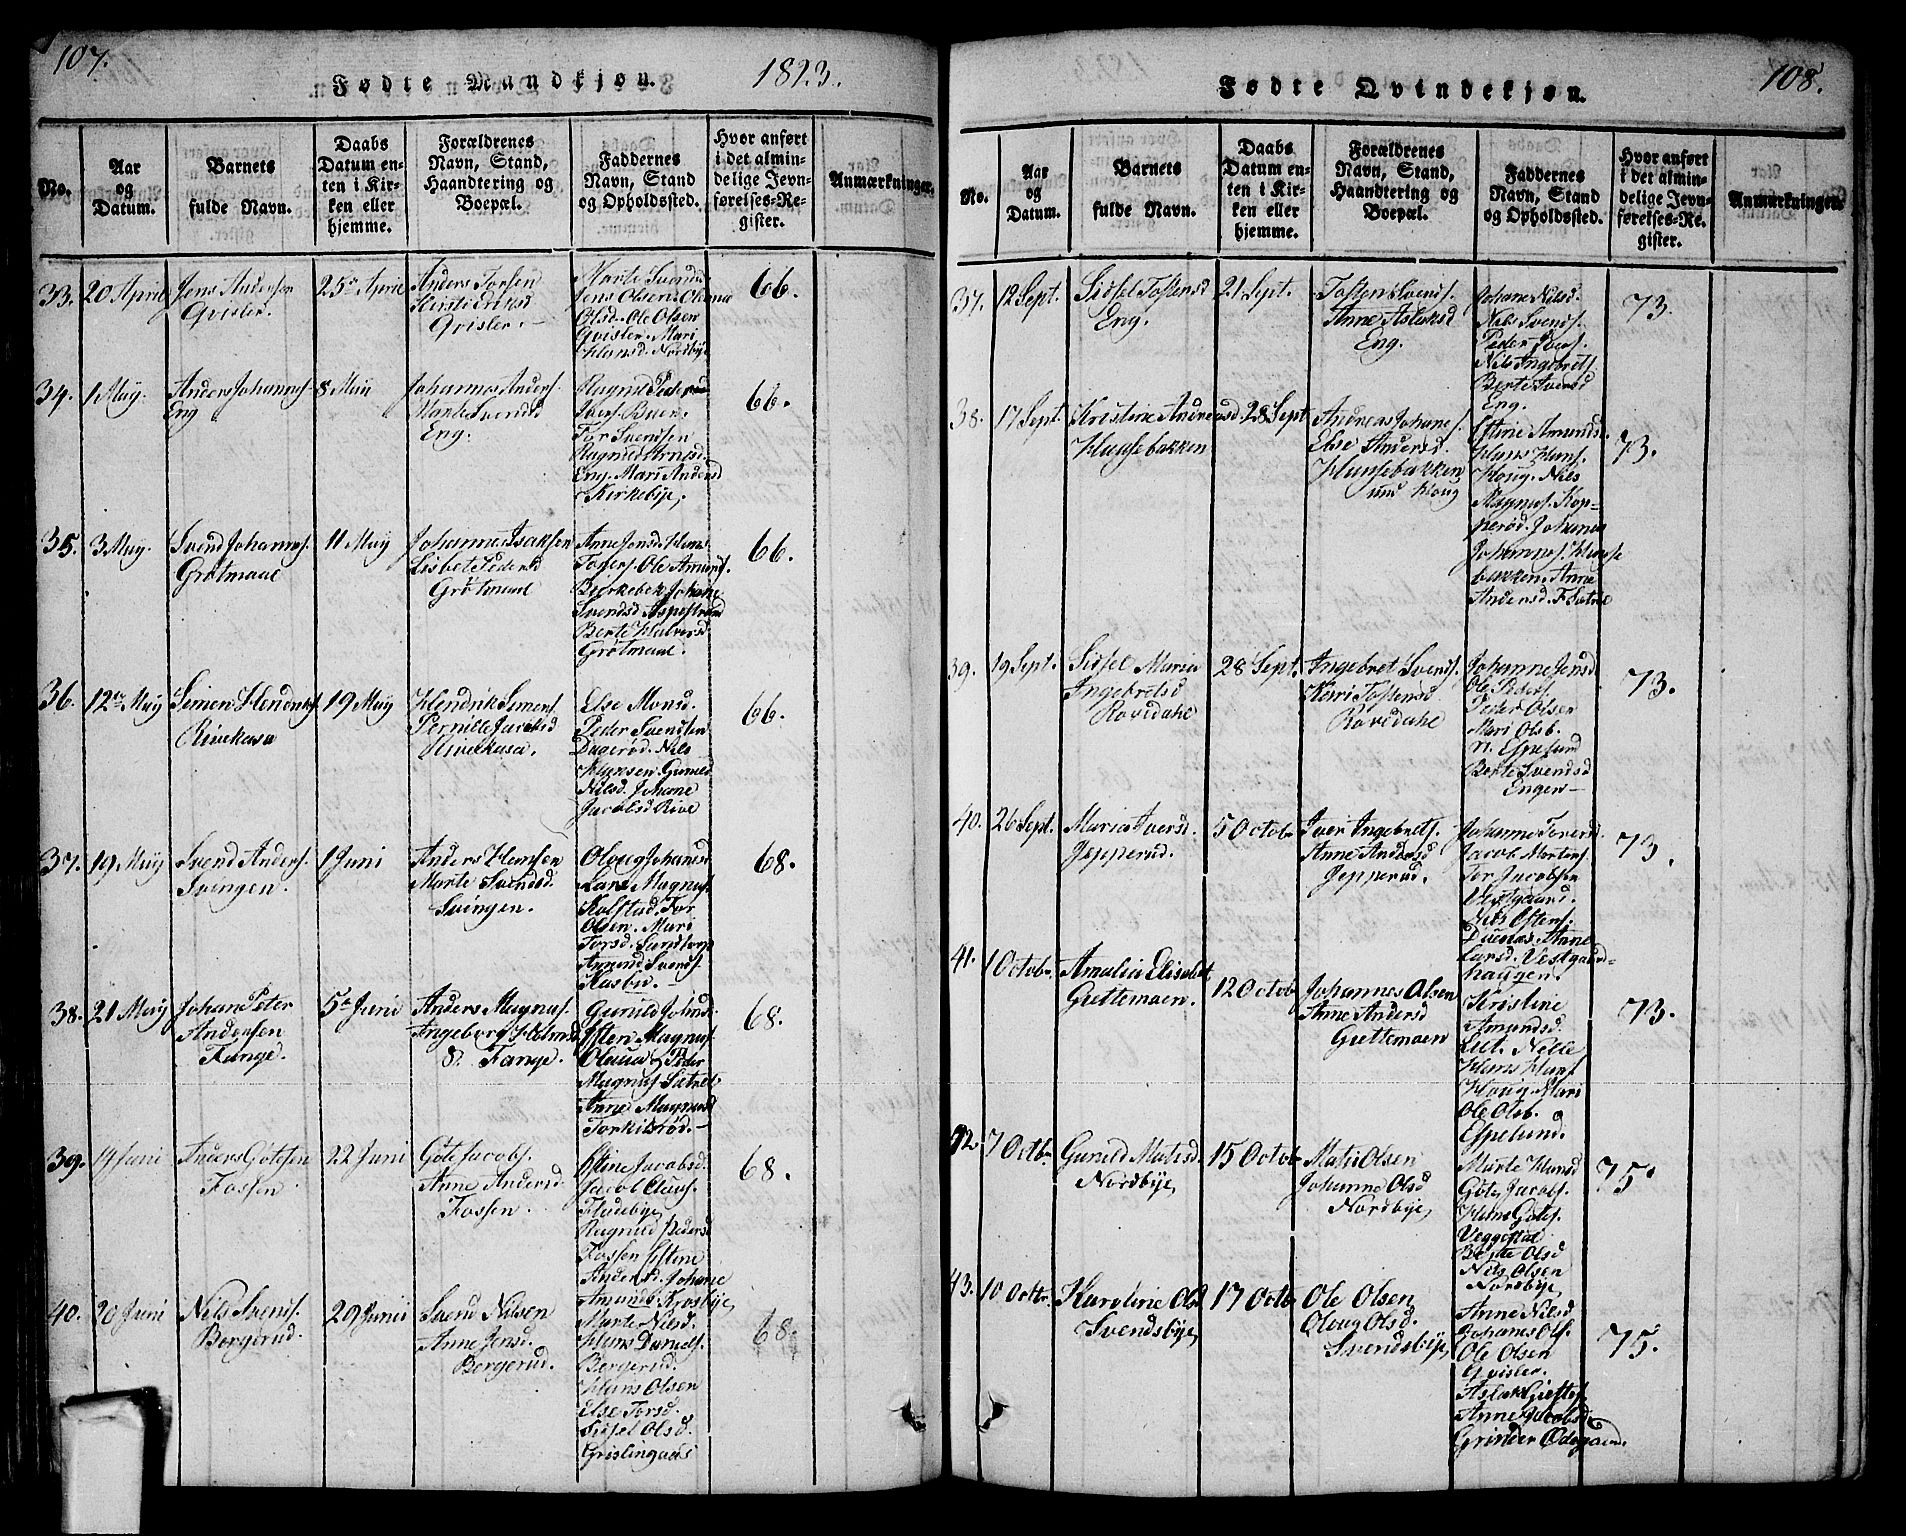 107.
Fødte Mandkjøn.
1823.
No.
Aar
og
Datum.
Barnets
fulde Navn.
Daabs
Datum en-
ten i Kir-
ken eller
hjemme.
Forældrenes
Navn, Stand,
Haandtering og
Boepæl.
Faddernes
Navn, Stand
og Opholdssted.
Hvor anført
i det almin-
delige Jevn-
førelses-Re-
gister.
Anmærkninger.
33.
20 April
Jens Andersen
Qvisler.
25de April
Anders Torsen
Kirsti Eriksd
Qvisler.
Marte Svendsd
Jens Olsen Oleana
Olsd. Ole Olsen
Qvisler. Mari
Hansd. Nordbye
66.
34.
1 May.
Anders Johannes.
Eng
8 May
Johannes Anders.
Marte Svendsd
Eng.
Ragnild Peders
Iver Buer
Tor Svendsen
Ragnild Arnesd.
Eng. Mari Andersd
Kirkebye,
66.
35.
3 May.
Svend Johannes.
Grøtmaal
11 May
Johannes Isaksen
Lisbet Pedersd
Grøtmaal
Anne Jensd. Hans
Torers. Ole Amunds.
Bierkebek Johane
Svendsd Aspestrand
Berte Halvorsd
Grøtmaal.
66.
36.
12te May
Simen Hendriks.
Rivekasa
19 May
Hendrik Simens.
Pernille Jacobsd
Rivekasa.
Else Monsd.
Peder Svendsen
Dagerød. Nils
Hansen. Gunild
Nilsd. Johane
Jacobsd Rive
66.
37.
19 May
Svend Anders.
Svingen.
1 Juni
Anders Hansen
Marte Svendsd.
Svingen.
Oloug Johansd
Lars Magnus.
Kolstad. Tor
Olsen. Mari
Torsd. Sandtorp
Amund Svends.
Kasbu.
68.
38.
21 May
Johan Peter
Andersen
Fange.
5te Juni
Anders Magnus.
Ingeborg
Fange.
Gunild Johnsd.
Østen Magnus.
Olaua & Peder
Magnus. Sætret
Anne Magnusd
Torkilsrød.
68.
39.
14 Juni
Anders Götesen
Fossen
22 Juni
Göte Jacobs.
Anne Andersd
Fossen.
Estine Jacobsd.
Jacob Claus.
Fladebye,
Ragnild Pedersd
Fossen Estine
Andersd. Johane
Amundsd. Krosbye,
68.
40.
20 Juni
Nils Svends.
Bergerud.
29 Junii
Svend Nilsen
Anne Jensd.
Bergerud.
Marte Nilsd.
Hans Daniels.
Bergerud.
Hans Olsen
Else Torsd.
Sissel Olsd.
Grislingaas
68.
108.
Fødte Qvindekjøn.
No.
Aar
og
Datum.
Barnets
fulde Navn.
Daabs
Datum en-
ten i Kir-
ken eller
hjemme.
Forældrenes
Navn, Stand,
Haandtering og
Boepæl.
Faddernes
Navn, Stand
og Opholdssted.
Hvor anført
i det almin-
delige Jevn-
førelses-Re-
gister.
Anmærkninger.
37.
12 Sept.
Sidsel Tostensd
Eng.
21 Sept.
Tosten Svends.
Anne Aslaksd
Eng.
Johane Nilsd.
Nils Svends.
Peder Ivers.
Nils Ingebrets.
Berte Iversd
Eng.
73.
38.
17 Sept.
Kristine Andreasd.
Hugsebakken
28 Sept.
Andreas Johanes.
Else Andersd.
Hunsebakken
und Houg
Estine Amunds.
Hans Hans.
Houg. Nils
Magnus. Kop-
perød. Johanes
Johannes. Hunse
bakken. Anne
Andersd. F. Sætre
73.
39.
19 Sept.
Sidsel Maria
Ingebretsd
Rovsdahl
28 Sept.
Ingebret Svends.
Kari Tostensd
Rovsdahl
Johanne Jensd
Ole Peders.
Peder Olsen
Mari Olsb.
n. Espelund
Berte Svendsd
Engen
73.
40.
26 Sept.
Maria Iversd.
Jepperud.
5 Octobr
Iver Ingebrets.
Anne Andersd
Jepperud.
Johanne Torersd.
Jacob Mortens.
Tor Jacobsen
Vestgaard.
Nils Østens.
Duenæs. Anne
Larsd. Vestgaard-
haugen.
73.
41.
1 Octobr.
Amalia Elisabet
Guttemoen.
12 Octob
Johannes Olsen
Anne Andersd
Guttemoen
Kristine
Amundsd.
Lut. Nelle
Hans Hans.
Houg. Mari
Ole Olsb.
Espelund.
73.
42.
7 Octbr
Gunild Matisd.
Nordbye,
15 Octobr
Matis Olsen
Johanne Olsd
Nordbye,
Marte Hansd
Göte Jacobs.
Hans Götes.
Veggestad
Berte Olsd
Nils Olsen
Nordbye,
75.
43.
10 Octbr.
Karoline Olsd
Svendsbye,
17 Octbr
Ole Olsen
Oloug Olsd.
Svendsbye,
Anne Nilsd
Johanes Ols.
Ole Olsen
Qvisler.
Aslak Giettes.
Anne Jacobsd.
Grinder Ødegaard.
75.